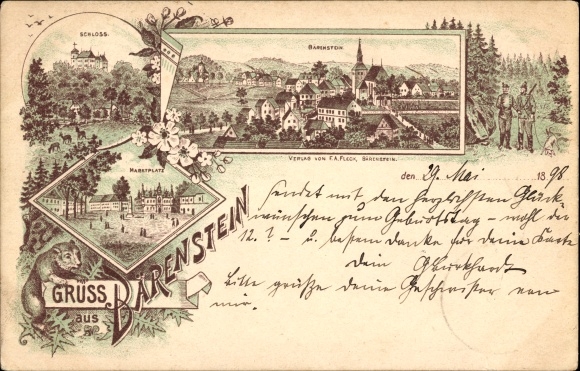 SCHLOSS.
BÄRENSTEIN.
VERLAG VON F. A. FLECK, BÄRENSTEIN.
MARKTPLATZ
GRUSS
aus
BÄRENSTEIN
den 29. Mai 1898
Sendet mit den herzlichsten Glück-
wünschen zum Geburtstag – wohl der
12. ? – u. bestem Danke für deine Karte
Dein GBurkhardt
Bitte grüße deine Geschwister von
mir.